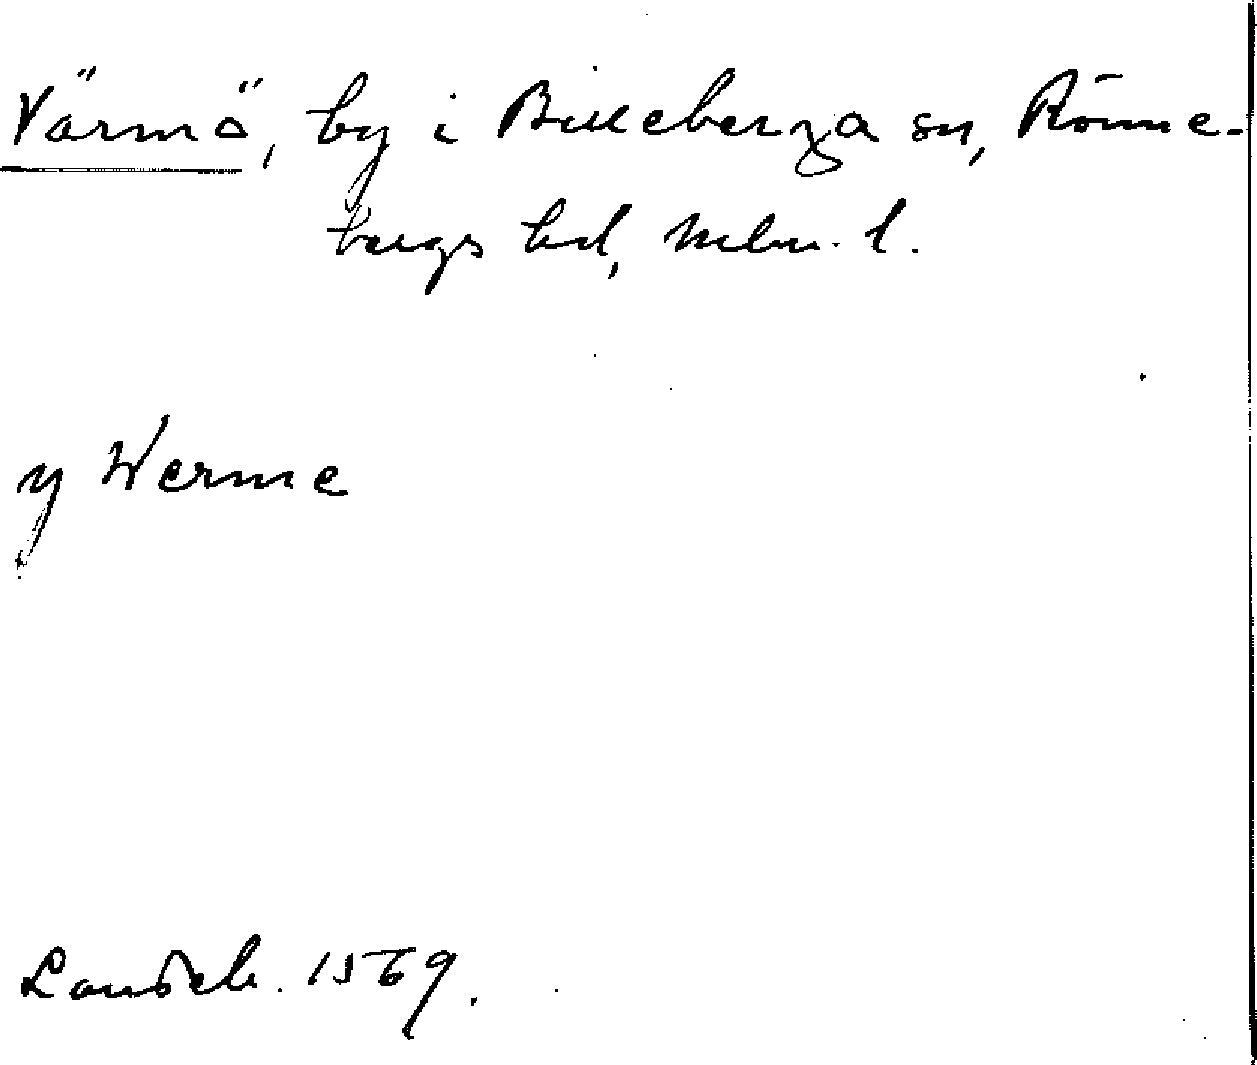 Värmö, by i Billeberga sn, Rönne-
bergs hd, Mlm. l.
y Werme
Landeb. 1569.